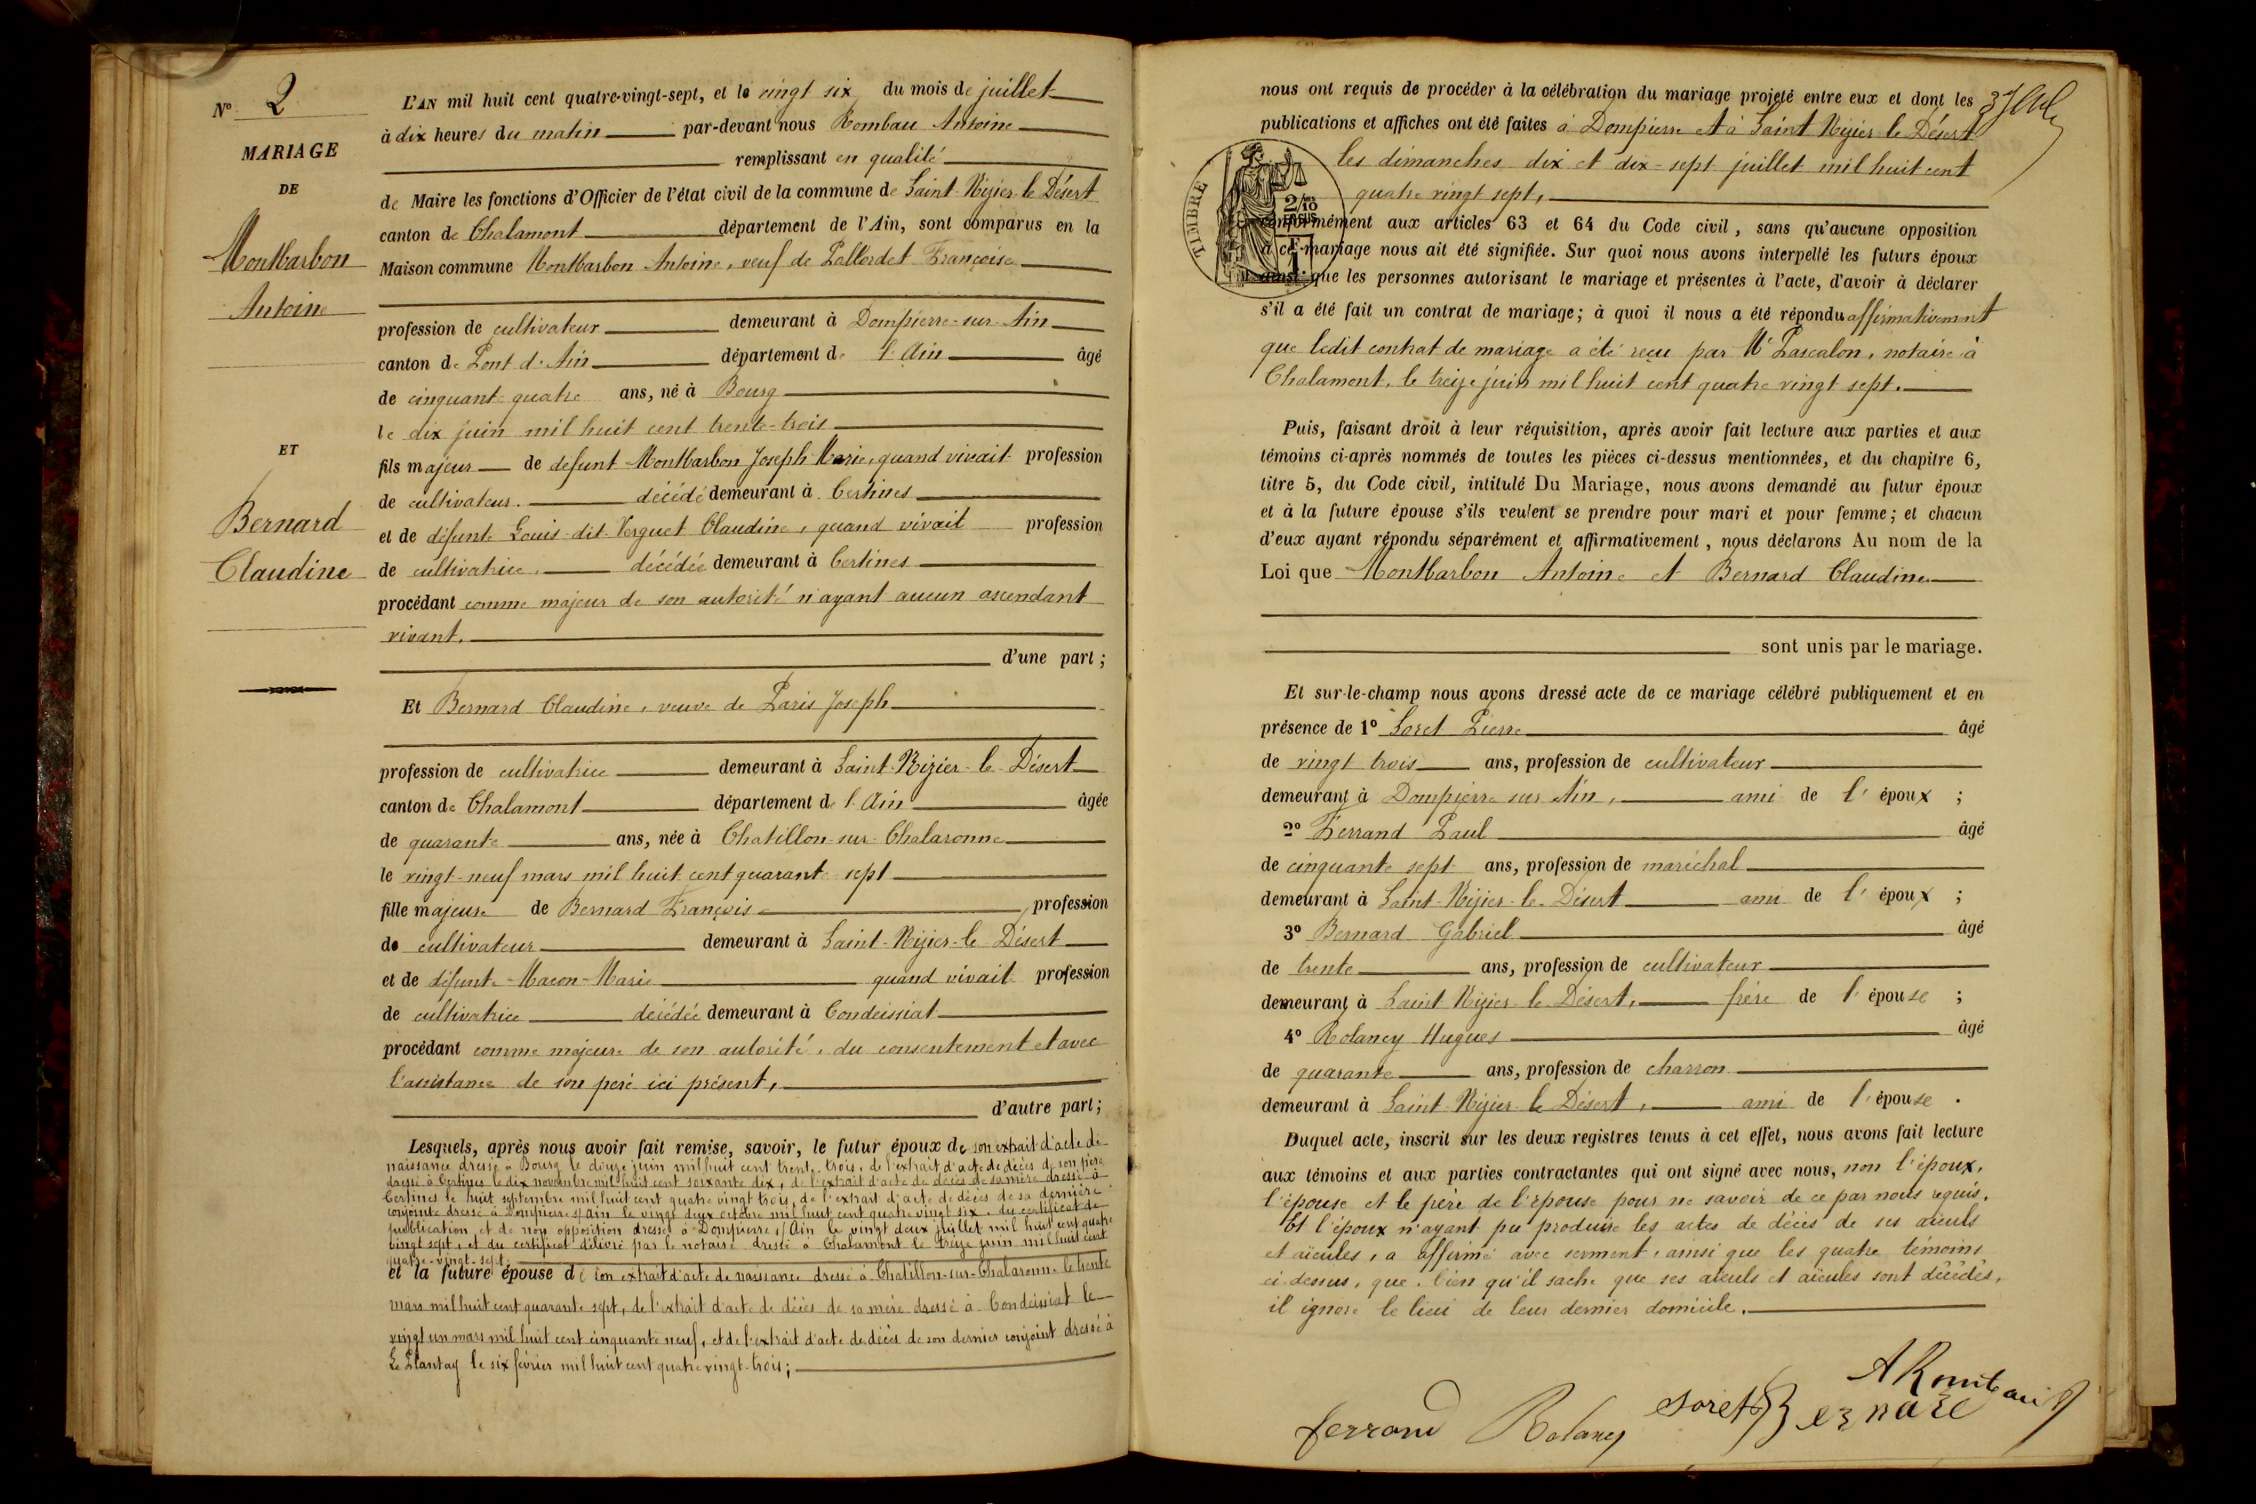 Nº 2
MARIAGE
DE
Montbarbon
Antoine
ET
Bernard
Claudine
L'AN mil huit cent quatre-vingt-sept, et le vingt six du mois de juillet
à dix heures du matin par-devant nous Rombau Antoine
remplissant en qualité
de Maire les fonctions d'Officier de l'état civil de la commune de Saint-Nizier-le-Désert
canton de Chalamont département de l'Ain, sont comparus en la
Maison commune Montbarbon Antoine, veuf de Françoise
profession de cultivateur demeurant à Dompierre-sur-Ain
canton de Pont d'Ain département de l'Ain âgé
de cinquante quatre ans, né à Bourg
le dix juin mil huit cent trente-trois
fils majeur de défunt Montbarbon Joseph Marie, quand vivait profession
de cultivateur. décédé demeurant à Certines
et de défunte Louis dit Verguet Claudine, quand vivait profession
de cultivatrice, décédée demeurant à Certines
procédant comme majeur de son autorité n'ayant aucun ascendant
vivant.
d'une part ;
Et Bernard Claudine, veuve de Paris Joseph
profession de cultivatrice demeurant à Saint-Nizier-le-Désert
canton de Chalamont département de l'Ain âgée
de quarante ans, née à Chatillon-sur-Chalaronne
le vingt-neuf mars mil huit cent quarante sept
fille majeure de Bernard François profession
de cultivateur demeurant à Saint-Nizier-le-Désert
et de défunte Macon Marie quand vivait profession
de cultivatrice décédée demeurant à Condeissiat
procédant comme majeure de son autorité, du consentement et avec
l'assistance de son père ici présent,
d'autre part ;
Lesquels, après nous avoir fait remise, savoir, le futur époux de son extrait d'acte de
naissance dressé à Bourg le douze juin mil huit cent trente trois, de l'extrait d'acte de décès de son père
dressé à Certines le dix novembre mil huit cent soixante dix, de l'extrait d'acte de décès de sa mère dressé à
Certines le huit septembre mil huit cent quatre vingt trois, de l'extrait d'acte de décès de sa dernière
conjointe dressé à Dompierre s/Ain le vingt deux octobre mil huit cent quatre vingt six, du certificat de
publication et de non opposition dressé à Dompierre s/Ain le vingt deux juillet mil huit cent quatre
vingt sept, et du certificat délivré par le notaire dressé à Chalamont le treize juin mil huit cent
quatre-vingt-sept.
et la future épouse de son extrait d'acte de naissance dressé à Chatillon-sur-Chalaronne le trente
mars mil huit cent quarante sept, de l'extrait d'acte de décès de sa mère dressé à Condeissiat le
vingt un mars mil huit cent cinquante neuf, et de l'extrait d'acte de décès de son dernier conjoint dressé à
Le Plantay le six février mil huit cent quatre vingt-trois ;
nous ont requis de procéder à la célébration du mariage projeté entre eux et dont les
publications et affiches ont été faites à Dompierre et à Saint Nizier le Désert
les dimanches dix et dix-sept juillet mil huit cent
quatre vingt sept,
TIMBRE
2/10
EN SUS
conformément aux articles 63 et 64 du Code civil, sans qu'aucune opposition
à ce mariage nous ait été signifiée. Sur quoi nous avons interpellé les futurs époux
ainsi que les personnes autorisant le mariage et présentes à l'acte, d'avoir à déclarer
s'il a été fait un contrat de mariage ; à quoi il nous a été répondu affirmativement
que ledit contrat de mariage a été reçu par Me Pascalon, notaire à
Chalamont, le treize juin mil huit cent quatre vingt sept.
Puis, faisant droit à leur réquisition, après avoir fait lecture aux parties et aux
témoins ci-après nommés de toutes les pièces ci-dessus mentionnées, et du chapitre 6,
titre 5, du Code civil, intitulé Du Mariage, nous avons demandé au futur époux
et à la future épouse s'ils veulent se prendre pour mari et pour femme ; et chacun
d'eux ayant répondu séparément et affirmativement, nous déclarons Au nom de la
Loi que Montbarbon Antoine et Bernard Claudine
sont unis par le mariage.
Et sur-le-champ nous avons dressé acte de ce mariage célébré publiquement et en
présence de 1º Soret Pierre âgé
de vingt trois ans, profession de cultivateur
demeurant à Dompierre sur Ain, ami de l'époux ;
2º Ferrand Paul âgé
de cinquante sept ans, profession de maréchal
demeurant à Saint-Nizier-le-Désert ami de l'époux ;
3º Bernard Gabriel âgé
de trente ans, profession de cultivateur
demeurant à Saint-Nizier le Désert, frère de l'épouse ;
4º Rolancy Hugues âgé
de quarante ans, profession de charron
demeurant à Saint Nizier le Désert, ami de l'épouse .
Duquel acte, inscrit sur les deux registres tenus à cet effet, nous avons fait lecture
aux témoins et aux parties contractantes qui ont signé avec nous, non l'époux,
l'épouse et le père de l'épouse pour ne savoir de ce par nous requis.
Et l'époux n'ayant pu produire les actes de décès de ses aïeuls
et aïeules, a affirmé avec serment, ainsi que les quatre témoins
ci-dessus, que, bien qu'il sache que ses aïeuls et aïeules sont décédés,
il ignore le lieu de leur dernier domicile.
A Rombau
ferrand Rolancy soret Bernard